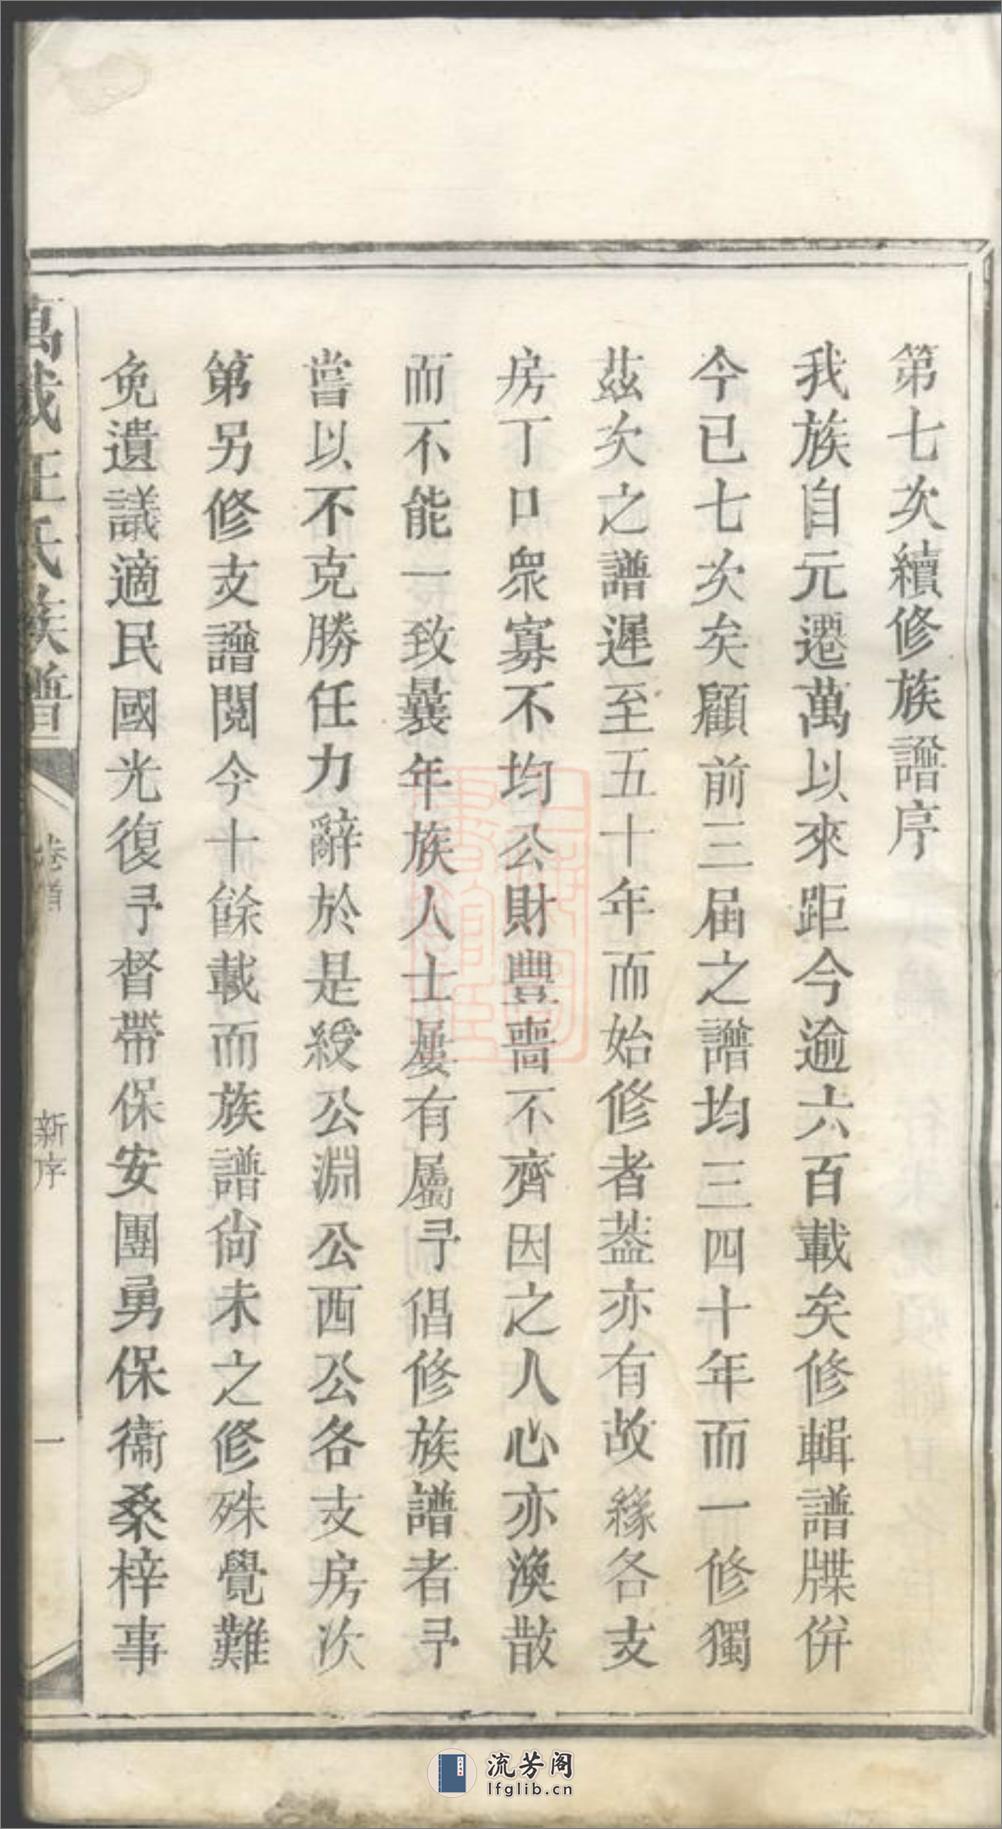 第七次續修族譜序
我族自元遷萬以來距今逾六百載矣修輯譜牒併
今已七次矣顧前三届之譜均三四十年而一修獨
茲次之譜遲至五十年而始修者葢亦有故緣各支
房丁口衆寡不均公財豐嗇不齊因之人心亦渙散
而不能一致曩年族人士屢有屬予倡修族譜者予
嘗以不克勝任力辭於是綬公淵公西公各支房次
第另修支譜閱今十餘載而族譜尙未之修殊覺難
免遺議適民國光復予督帶保安團勇保衞桑梓事
萬載王氏族譜
卷首
新序
一
流芳阁
lfglib.cn